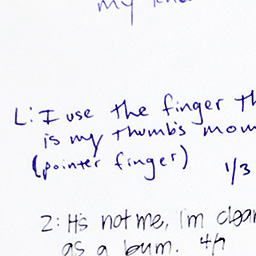 my
L: I use the finger th
is my thumb's mom
(pointer finger) 1/3
2: It's not me, I'm clean
as a bum. 4/9